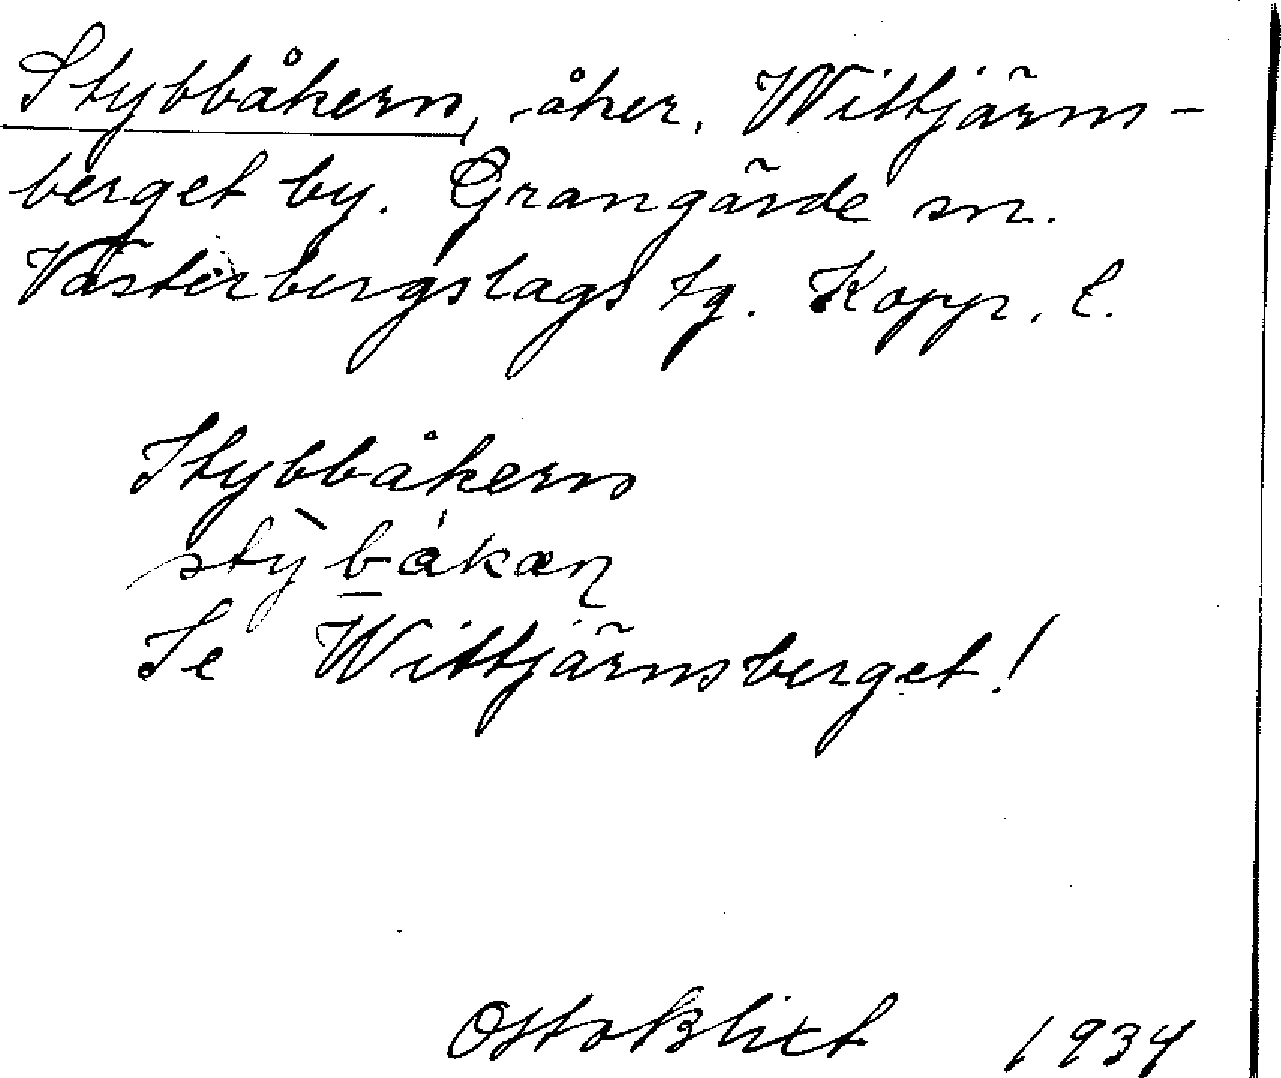 Stybbåkern, åker, Wittjärns-
berget by. Grangärde sn.
Västerbergslags tg. Kopp. l.
Stybbåkern
stỳb̲åkæn̩
Se Wittjärnsberget!
Otto Blixt 1934